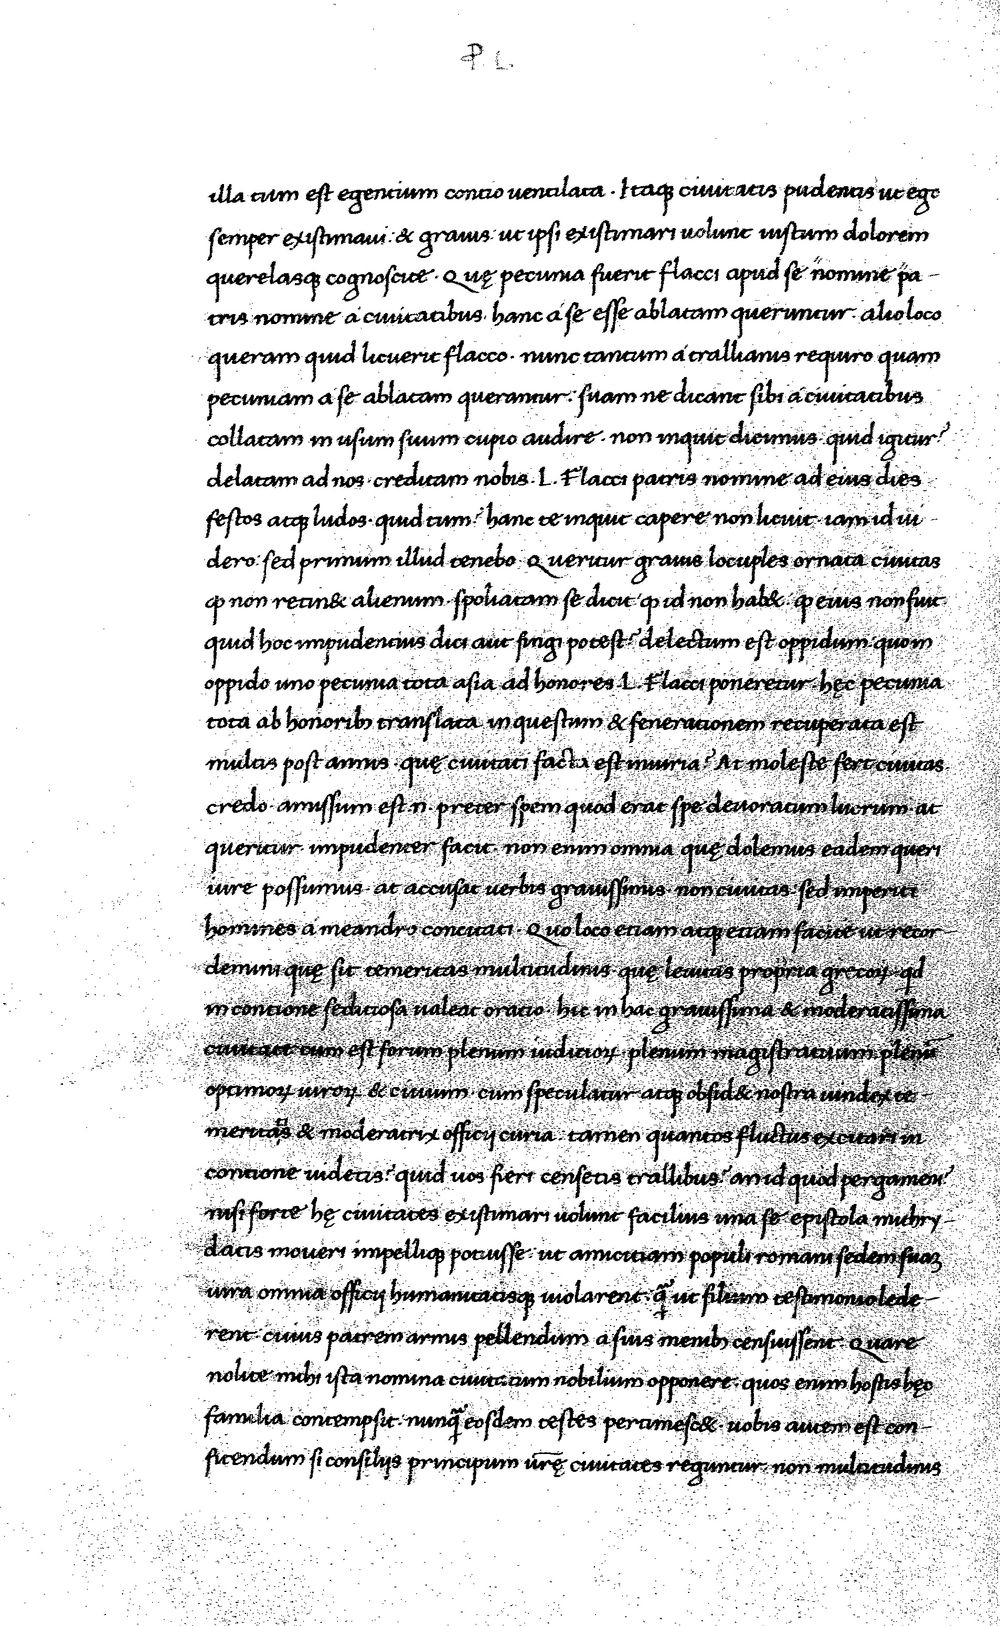 P. L.
illa tum est egentium contio ventilata · Itaqꝫ civitatis pudentis ut ego
semper existimaui: & grauis: ut ipsi existimari uolunt iustum dolorem
querelasqꝫ cognoscite · Quę pecunia fuerit flacci apud se nomine pa-
tris nomine a ciuitatibus. hanc a se esse ablatam queruntur. alio loco
queram quid licuerit flacco · nunc tantum a trallianis requiro quam
pecuniam a se ablatam querantur. suam ne dicant sibi a ciuitatibus
collatam in usum suum cupio audire · non inquit dicimus. quid igitur?
delatam ad nos. creditam nobis. L. Flacci patris nomine ad eius dies
festos atqꝫ ludos. quid tum? hanc te inquit capere non licuit. iam id ui-
dero. sed primum illud tenebo. Queritur grauis locuples ornata ciuitas
ꝙ non retin& alienum. spoliatam se dicit ꝙ id non hab& ꝙ eius non fuit.
quid hoc impudentius dici aut fingi potest? delectum est oppidum quom
oppido uno pecunia tota asia ad honores L. Flacci poneretur. hęc pecunia
tota ab honoribꝫ translata in questum & fenerationem recuperata est
multis post annis. quę ciuitati facta est iniuria? At moleste fert ciuitas.
credo. amissum est .n. preter spem quod erat spe deuoratum lucrum. at
queritur. impudenter facit. non enim omnia quę dolemus eadem queri
iure possumus. at accusat uerbis grauissimis. non ciuitas. sed imperiti
homines a meandro concitati. Quo loco etiam atqꝫ etiam facite ut recor-
demini quę sit temeritas multitudinis. quę leuitas propria grecoꝝ. qd
in contione seditiosa ualeat oratio. hic in hac grauissima & moderatissima
ciuitate cum est forum plenum iudicioꝝ. plenum magistratuum. plenū
optimoꝝ uiroꝝ & ciuium. cum speculatur atqꝫ obsid& nostra uindex te-
meritatis & moderatrix officij curia. tamen quantos fluctus excitari in
contione uidetis? quid uos fieri censetis trallibus? an id quod pergameni?
nisi forte hę ciuitates existimari uolunt facilius una se epistola mithry-
datis moueri impelliqꝫ potuisse. ut amicitiam populi romani fidem suaꝫ
iura omnia officij humanitatisqꝫ uiolarent. ꝗ̃ ut filium testimonio lede-
rent. cuius patrem armis pellendum a suis menibꝫ censuissent. Quare
nolite mihi ista nomina ciuitatum nobilium opponere. quos enim hostis hęc
familia contempsit. nunꝗ̃ eosdem testes pertimesc& uobis autem est con-
fitendum si consilijs principum ur̄ę ciuitates reguntur. non multitudinis